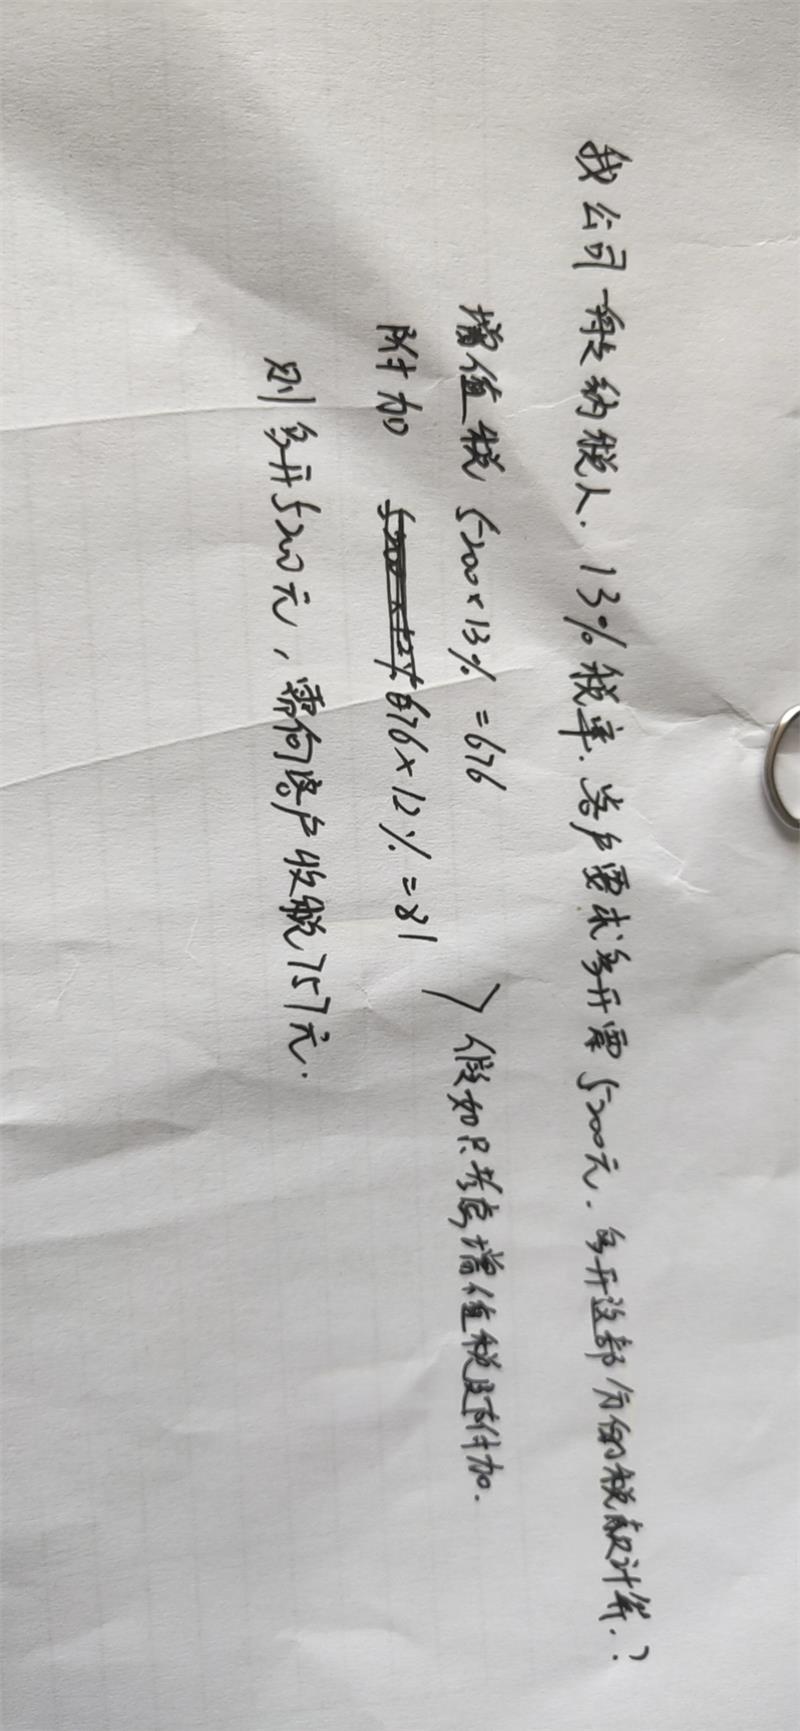 我公司一般纳税人. 13%税率. 客户要求多开票5200元. 多开这部份的税款计算.?
增值税 5200×13% =676
附加 676×12% =81
> 假如只考虑增值税及附加.
则多开5200元, 需向客户收税757元.